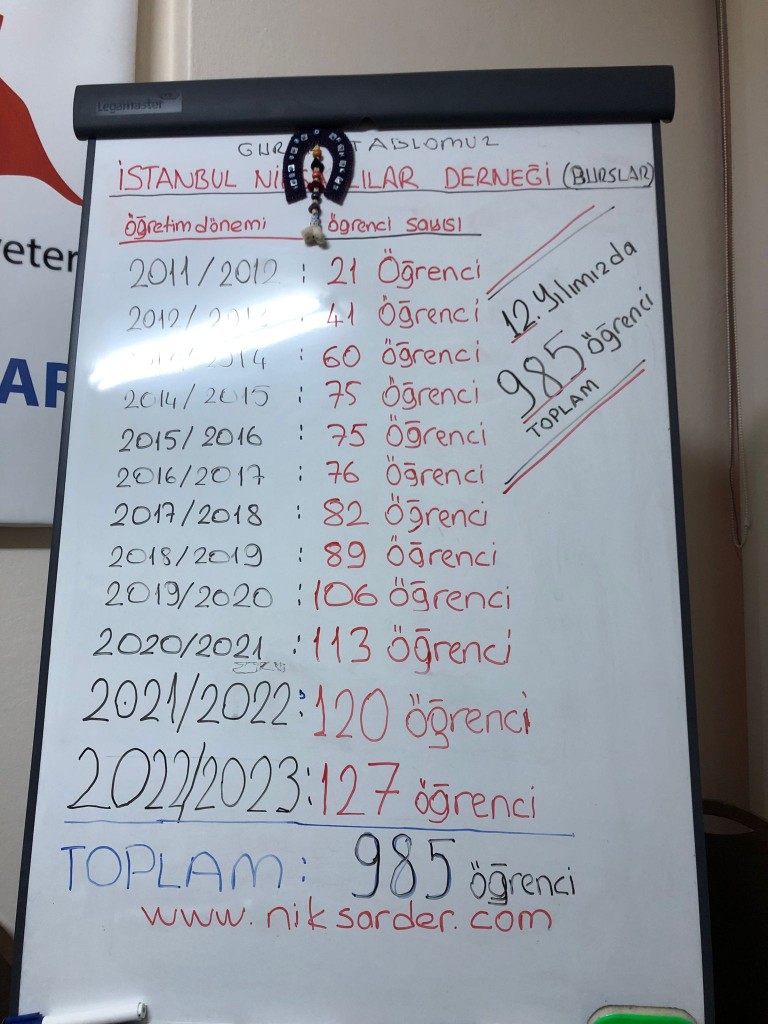 Legamaster
TABLOMUZ
İSTANBUL DERNEĞİ (BURSLAR)
öğretim dönemi öğrenci sayısı
2011/2012 : 21 Öğrenci
2012/ 41 Öğrenci
60 Öğrenci
2014/2015 : 75 Öğrenci
2015/2016 : 75 Öğrenci
2016/2017 : 76 Öğrenci
2017/2018 : 82 Öğrenci
2018/2019 : 89 Öğrenci
2019/2020 : 106 öğrenci
2020/2021 : 113 öğrenci
2021/2022 : 120 öğrenci
2022/2023 : 127 öğrenci
TOPLAM : 985 öğrenci
www.niksarder.com
12. Yılımızda
985 öğrenci
TOPLAM
yeter
AR